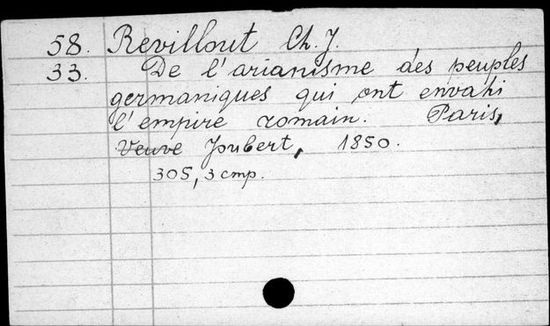 58. Revillout Ch. J.
33. De l'arianisme des peuples
germaniques qui ont envahi
l'empire romain. Paris,
Veuve Joubert, 1850.
305, 3 стр.